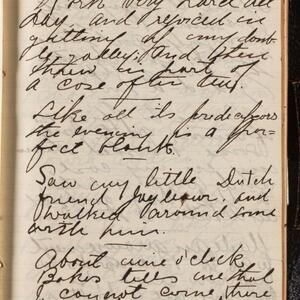 Work very hard all
day, and rejoiced in
getting at my
valley; And then
threw in part of
a case of
Like all its predecessors
the evening is a per-
fect blank.
Saw my little Dutch
friend and
walked around some
with him.
About nine o'clock
Bakes tells me that
I cannot come, there